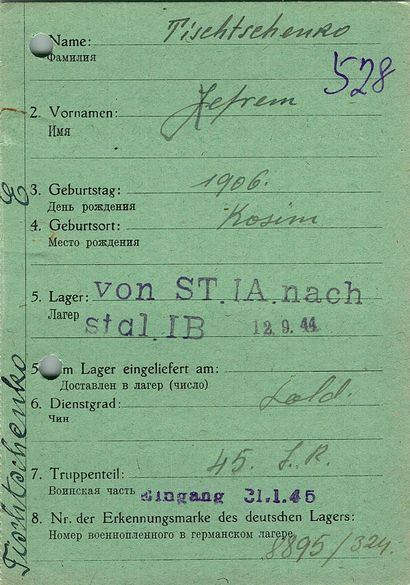 Name: Tischtschenko
Фамилия
528
2. Vornamen: Jefrem
Имя
3. Geburtstag: 1906.
День рождения
4. Geburtsort: Kosim
Место рождения
5. Lager: von ST.IA.nach
Лагер stal.IB 12.9.44
5 m Lager eingeliefert am:
Доставлен в лагер (число)
6. Dienstgrad: Sold.
Чин
7. Truppenteil: 45. S.R.
Воинская часть Eingang 31.1.45
8. Nr. der Erkennungsmarke des deutschen Lagers:
Номер военнопленного в германском лагере 8895/324.
Tischtschenko E